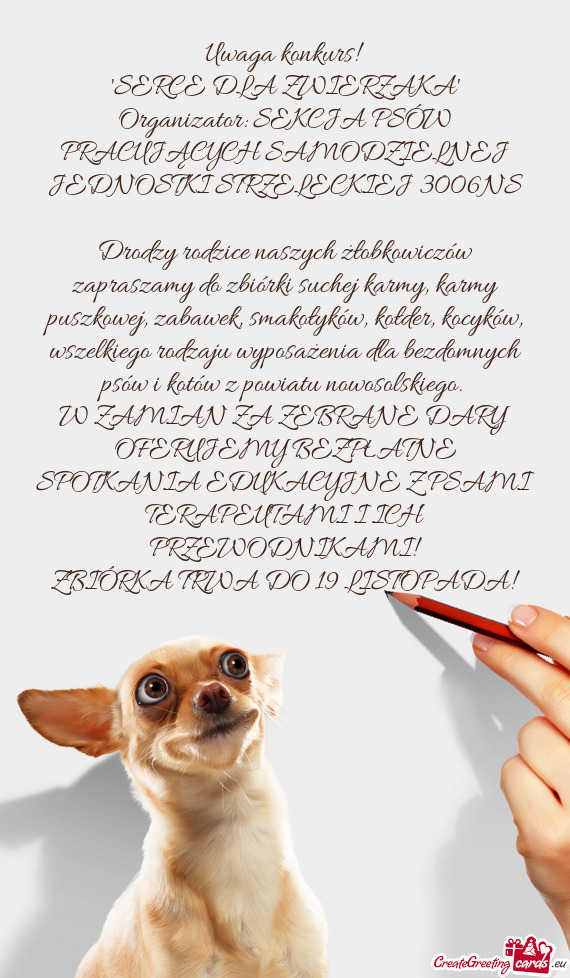 Uwaga konkurs!
"SERCE DLA ZWIERZAKA"
Organizator: SEKCJA PSÓW
PRACUJĄCYCH SAMODZIELNEJ
JEDNOSTKI STRZELECKIEJ 3006NS
Drodzy rodzice naszych żłobkowiczów
zapraszamy do zbiórki suchej karmy, karmy
puszkowej, zabawek, smakołyków, kołder, kocyków,
wszelkiego rodzaju wyposażenia dla bezdomnych
psów i kotów z powiatu nowosolskiego.
W ZAMIAN ZA ZEBRANE DARY
OFERUJEMY BEZPŁATNE
SPOTKANIA EDUKACYJNE Z PSAMI
TERAPEUTAMI I ICH
PRZEWODNIKAMI!
ZBIÓRKA TRWA DO 19 LISTOPADA!
CreateGreeting cards .eu